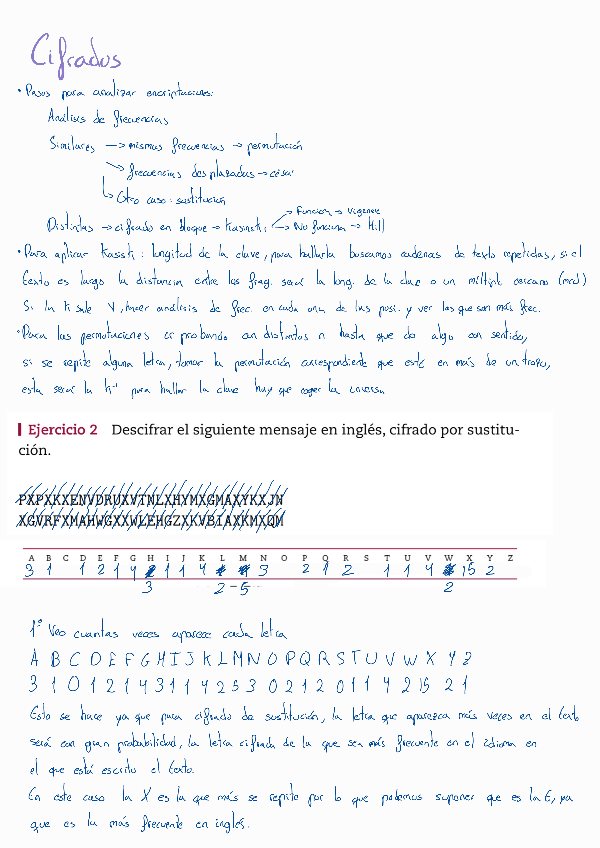 Cifrados
• Pasos para analizar encriptaciones:
Análisis de frecuencias
Similares → mismas frecuencias → permutación
→ frecuencias desplazadas → césar
→ Otro caso: sustitución
Distintas → cifrado en bloque → Kasiski → Funcion → Vigenere
→ No funciona → Hill
• Para aplicar Kasiski: longitud de la clave, para hallarla buscamos cadenas de texto repetidas, si el
texto es largo la distancia entre los frag. será la long. de la clave o un múltiplo cercano (mcd)
Si la K sale V, hacer análisis de frec. en cada una de las posi. y ver las que son más frec.
• Para las permutaciones ir probando con distintos n hasta que de algo con sentido,
si se repite alguna letra, tomar la permutación correspondiente que esté en más de un trozo,
esta será la k⁻¹ para hallar la clave hay que coger la inversa
Ejercicio 2 Descifrar el siguiente mensaje en inglés, cifrado por sustitu-
ción.
PXPXKXENVDRUXVTNLXHYMXGMAXYKXJN
XGVRFXMAHWGXXWLEHGZXKVBIAXKMXQM
A B C D E F G H I J K L M N O P Q R S T U V W X Y Z
3 1 1 2 1 4 1 1 4 3 2 1 2 1 1 4 15 2
3 2 - 5 2
1º Veo cuantas veces aparece cada letra
A B C D E F G H I J K L M N O P Q R S T U V W X Y Z
3 1 0 1 2 1 4 3 1 1 4 2 5 3 0 2 1 2 0 1 1 4 2 15 2 1
Esto se hace ya que para cifrado de sustitución, la letra que aparezca más veces en el texto
será con gran probabilidad, la letra cifrada de la que sea más frecuente en el idioma en
el que está escrito el texto.
En este caso la X es la que más se repite por lo que podemos suponer que es la E, ya
que es la más frecuente en inglés.